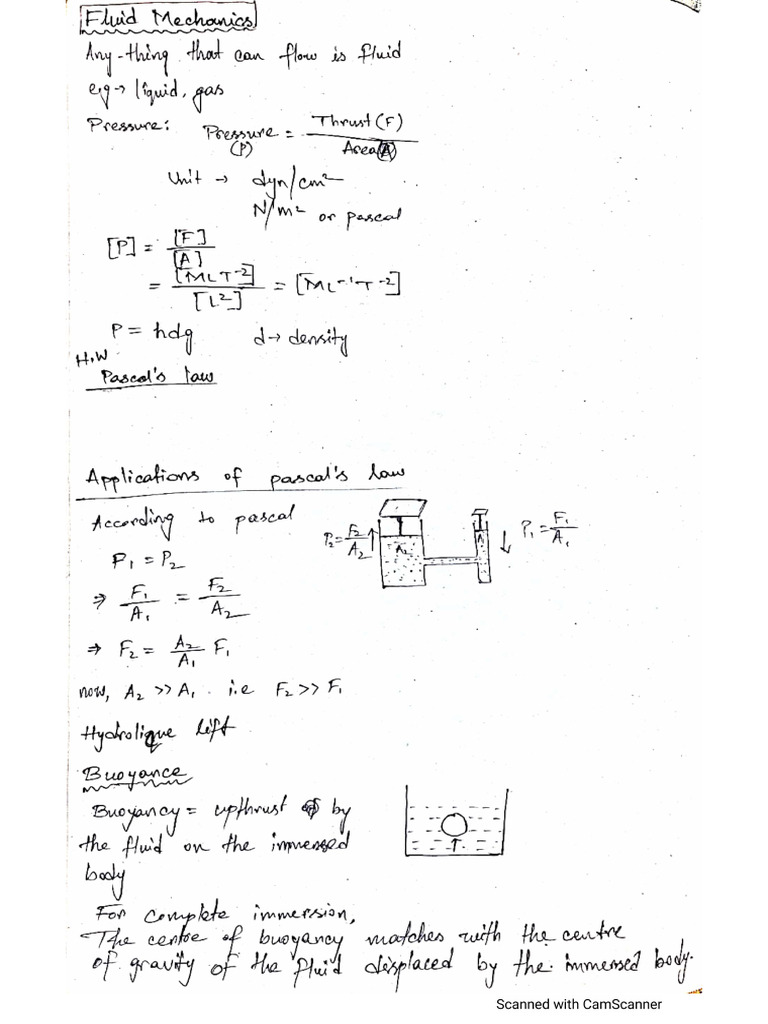 Fluid Mechanics
Any-thing that can flow is fluid
e.g → liquid, gas
Pressure: Pressure (P) = Thrust (F) / Area (A)
Unit → dyn/cm²
N/m² or pascal
[P] = [F] / [A]
= [MLT⁻²] / [L²] = [ML⁻¹T⁻²]
P = hdg d → density
H.W
Pascal's law
Applications of pascal's law
According to pascal
P₁ = P₂
⇒ F₁/A₁ = F₂/A₂
⇒ F₂ = A₂/A₁ F₁
now, A₂ >> A₁. i.e F₂ >> F₁
P₂ = F₂/A₂ ↑
A₂
A₁
↓ P₁ = F₁/A₁
Hydrolique lift
Buoyance
Buoyancy = upthrust by
the fluid on the immersed
body
For complete immersion,
The centre of buoyancy matches with the centre
of gravity of the fluid displaced by the immersed body.
Scanned with CamScanner